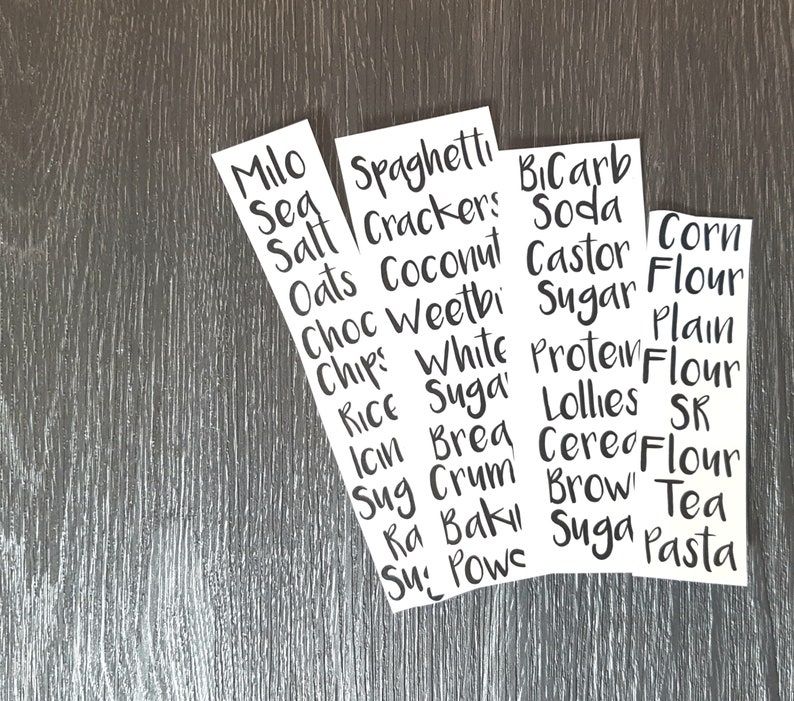 Milo
Sea
Salt
Oats
Choc
Chips
Rice
Icin
Sug
Ra
Sug
Spaghetti
Crackers
Coconut
Weetbi
White
Suga
Brea
Crum
Bakin
Powd
BiCarb
Soda
Castor
Sugar
Protein
Lollies
Cerea
Brown
Suga
Corn
Flour
Plain
Flour
SR
Flour
Tea
Pasta